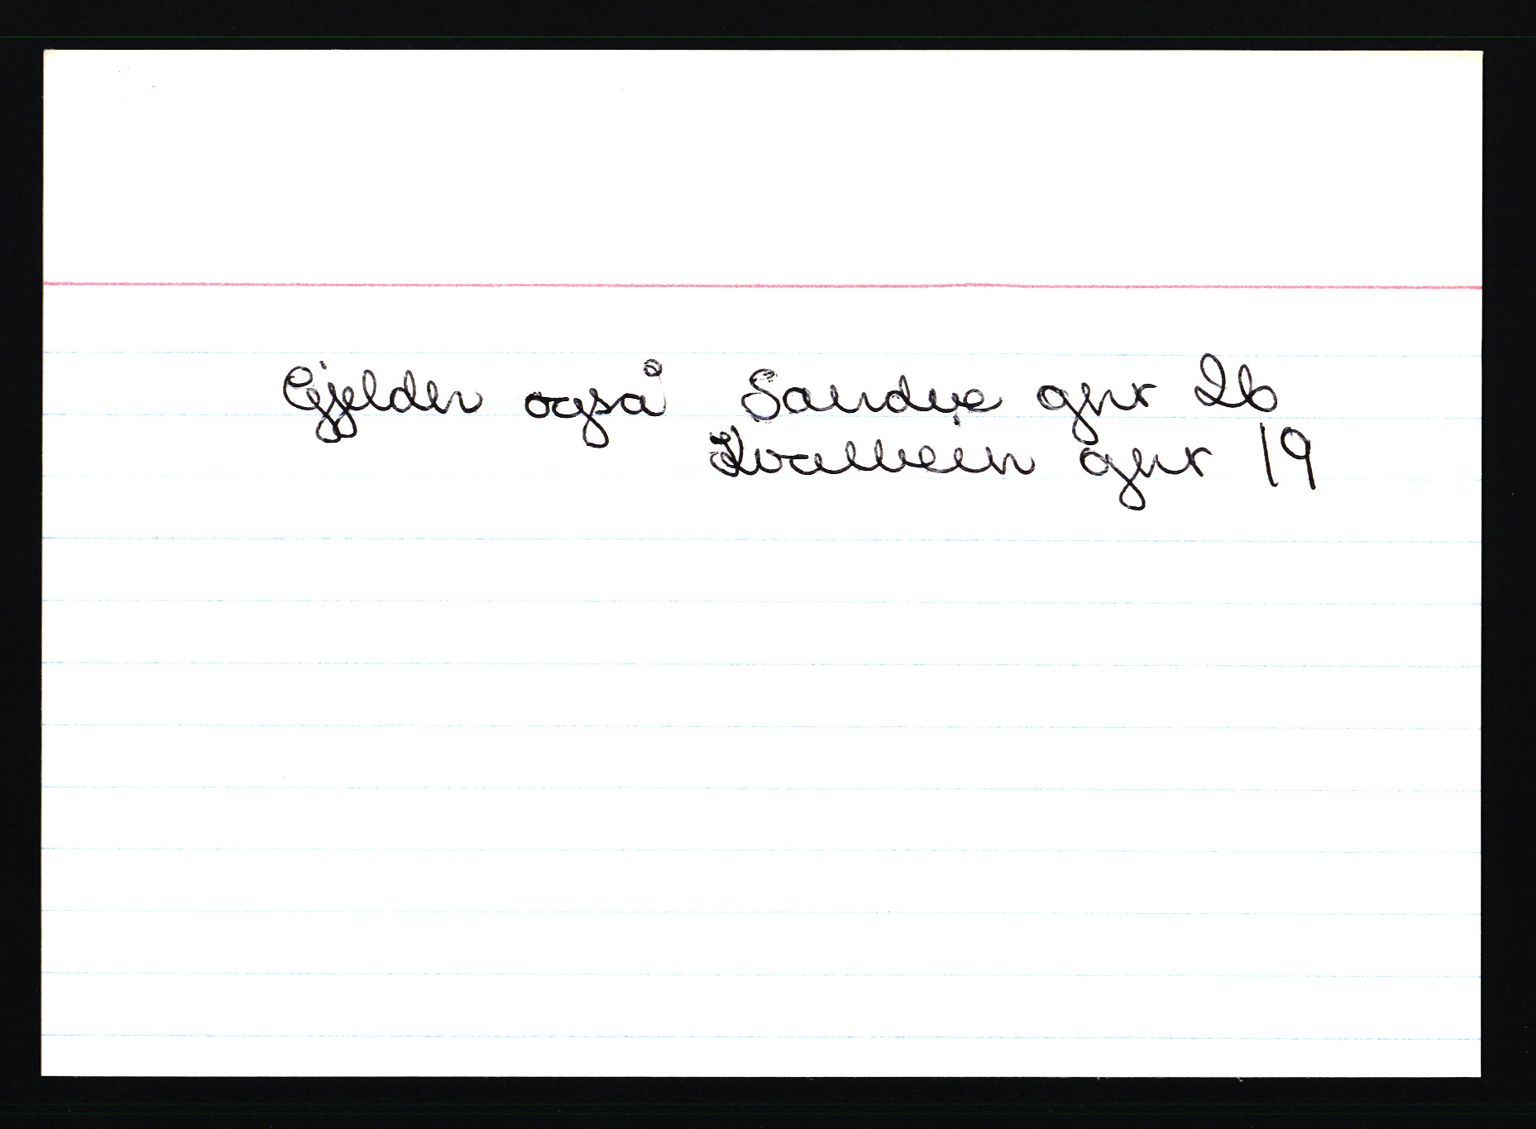 Gjelder også Sandve gnr 26
Kvalhein gnr 19